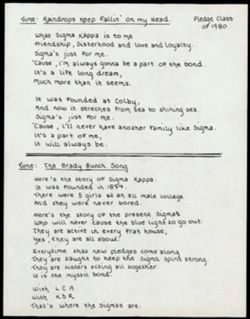 Tune: Raindrops Keep Fallin' on my Head.
Pledge Class of 1980
What Sigma Kappa is to me
Friendship, Sisterhood and love and loyalty.
Sigma's just for me.
'Cause, I'm always gonna be a part of the bond.
It's a life long dream,
Much more than it seems.
It was founded at Colby,
And now it stretches from sea to shining sea.
Sigma's just for me.
'Cause, I'll never have another family like Sigma.
It's a part of me,
It will always be.
Tune: The Brady Bunch Song
Here's the story of Sigma Kappa.
It was founded in 1874.
There were 5 girls at an all male college
And they were never bored.
Here's the story of the present Sigmas
Who will never cause the blue light to go out.
They are active in every Frat house,
Yes, they are all about.
Everytime that new pledges come along
They are taught to keep the Sigma spirit strong.
They are sisters acting all together
It is the mystic bond.
With L C A
With K D R
That's where the Sigmas are.